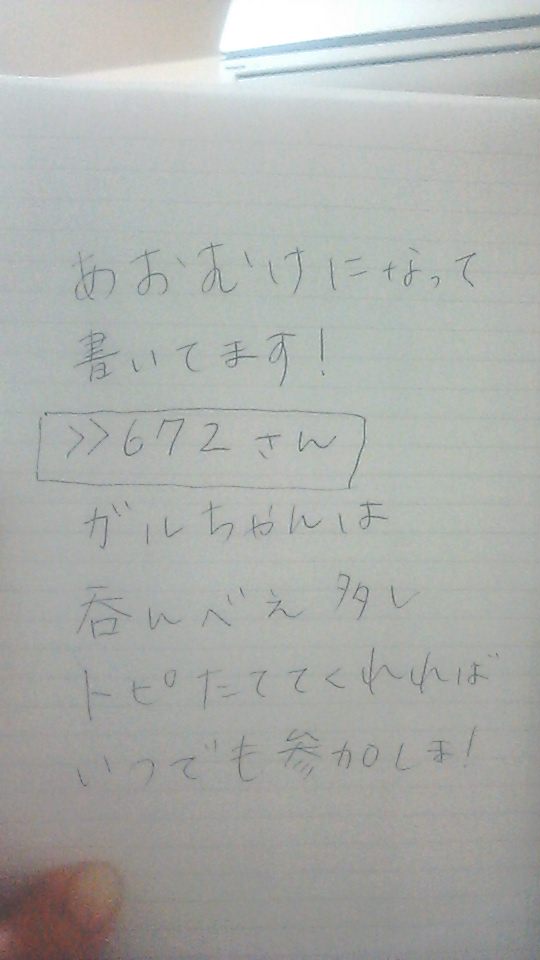 あおむけになって
書いてます!
>>672さん
ガルちゃんは
呑んべえ多し
トピたててくれれば
いつでも参加しま!